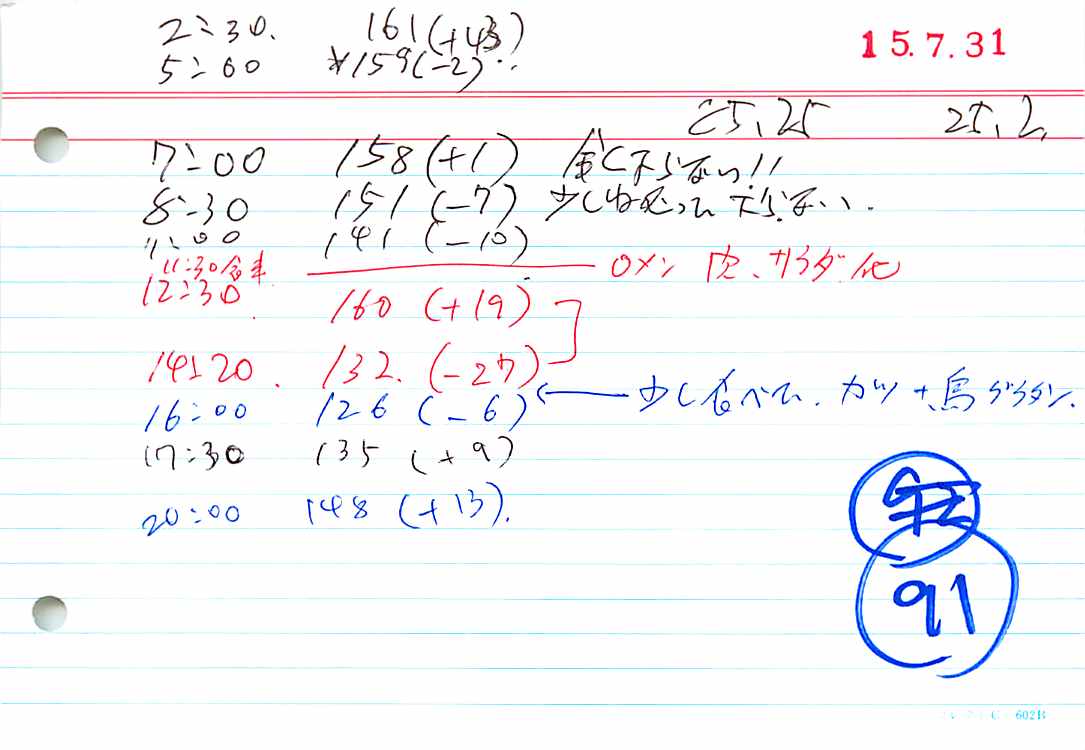 2:30. 161(+43)
15.7.31
5:00 *159(-2)
25.25 25.2
7:00 158(+1) 全く下らない!!
8:30 151(-7) 少しねむって 下らない.
11:00 141(-10)
11:30食事 ロメン 肉、サラダ他
12:30 160(+19)
14:20. 132.(-27)
16:00 126(-6) ← 少し食べて. カツ+鳥グラタン.
17:30 135(+9)
20:00 148(+13).
91
602B